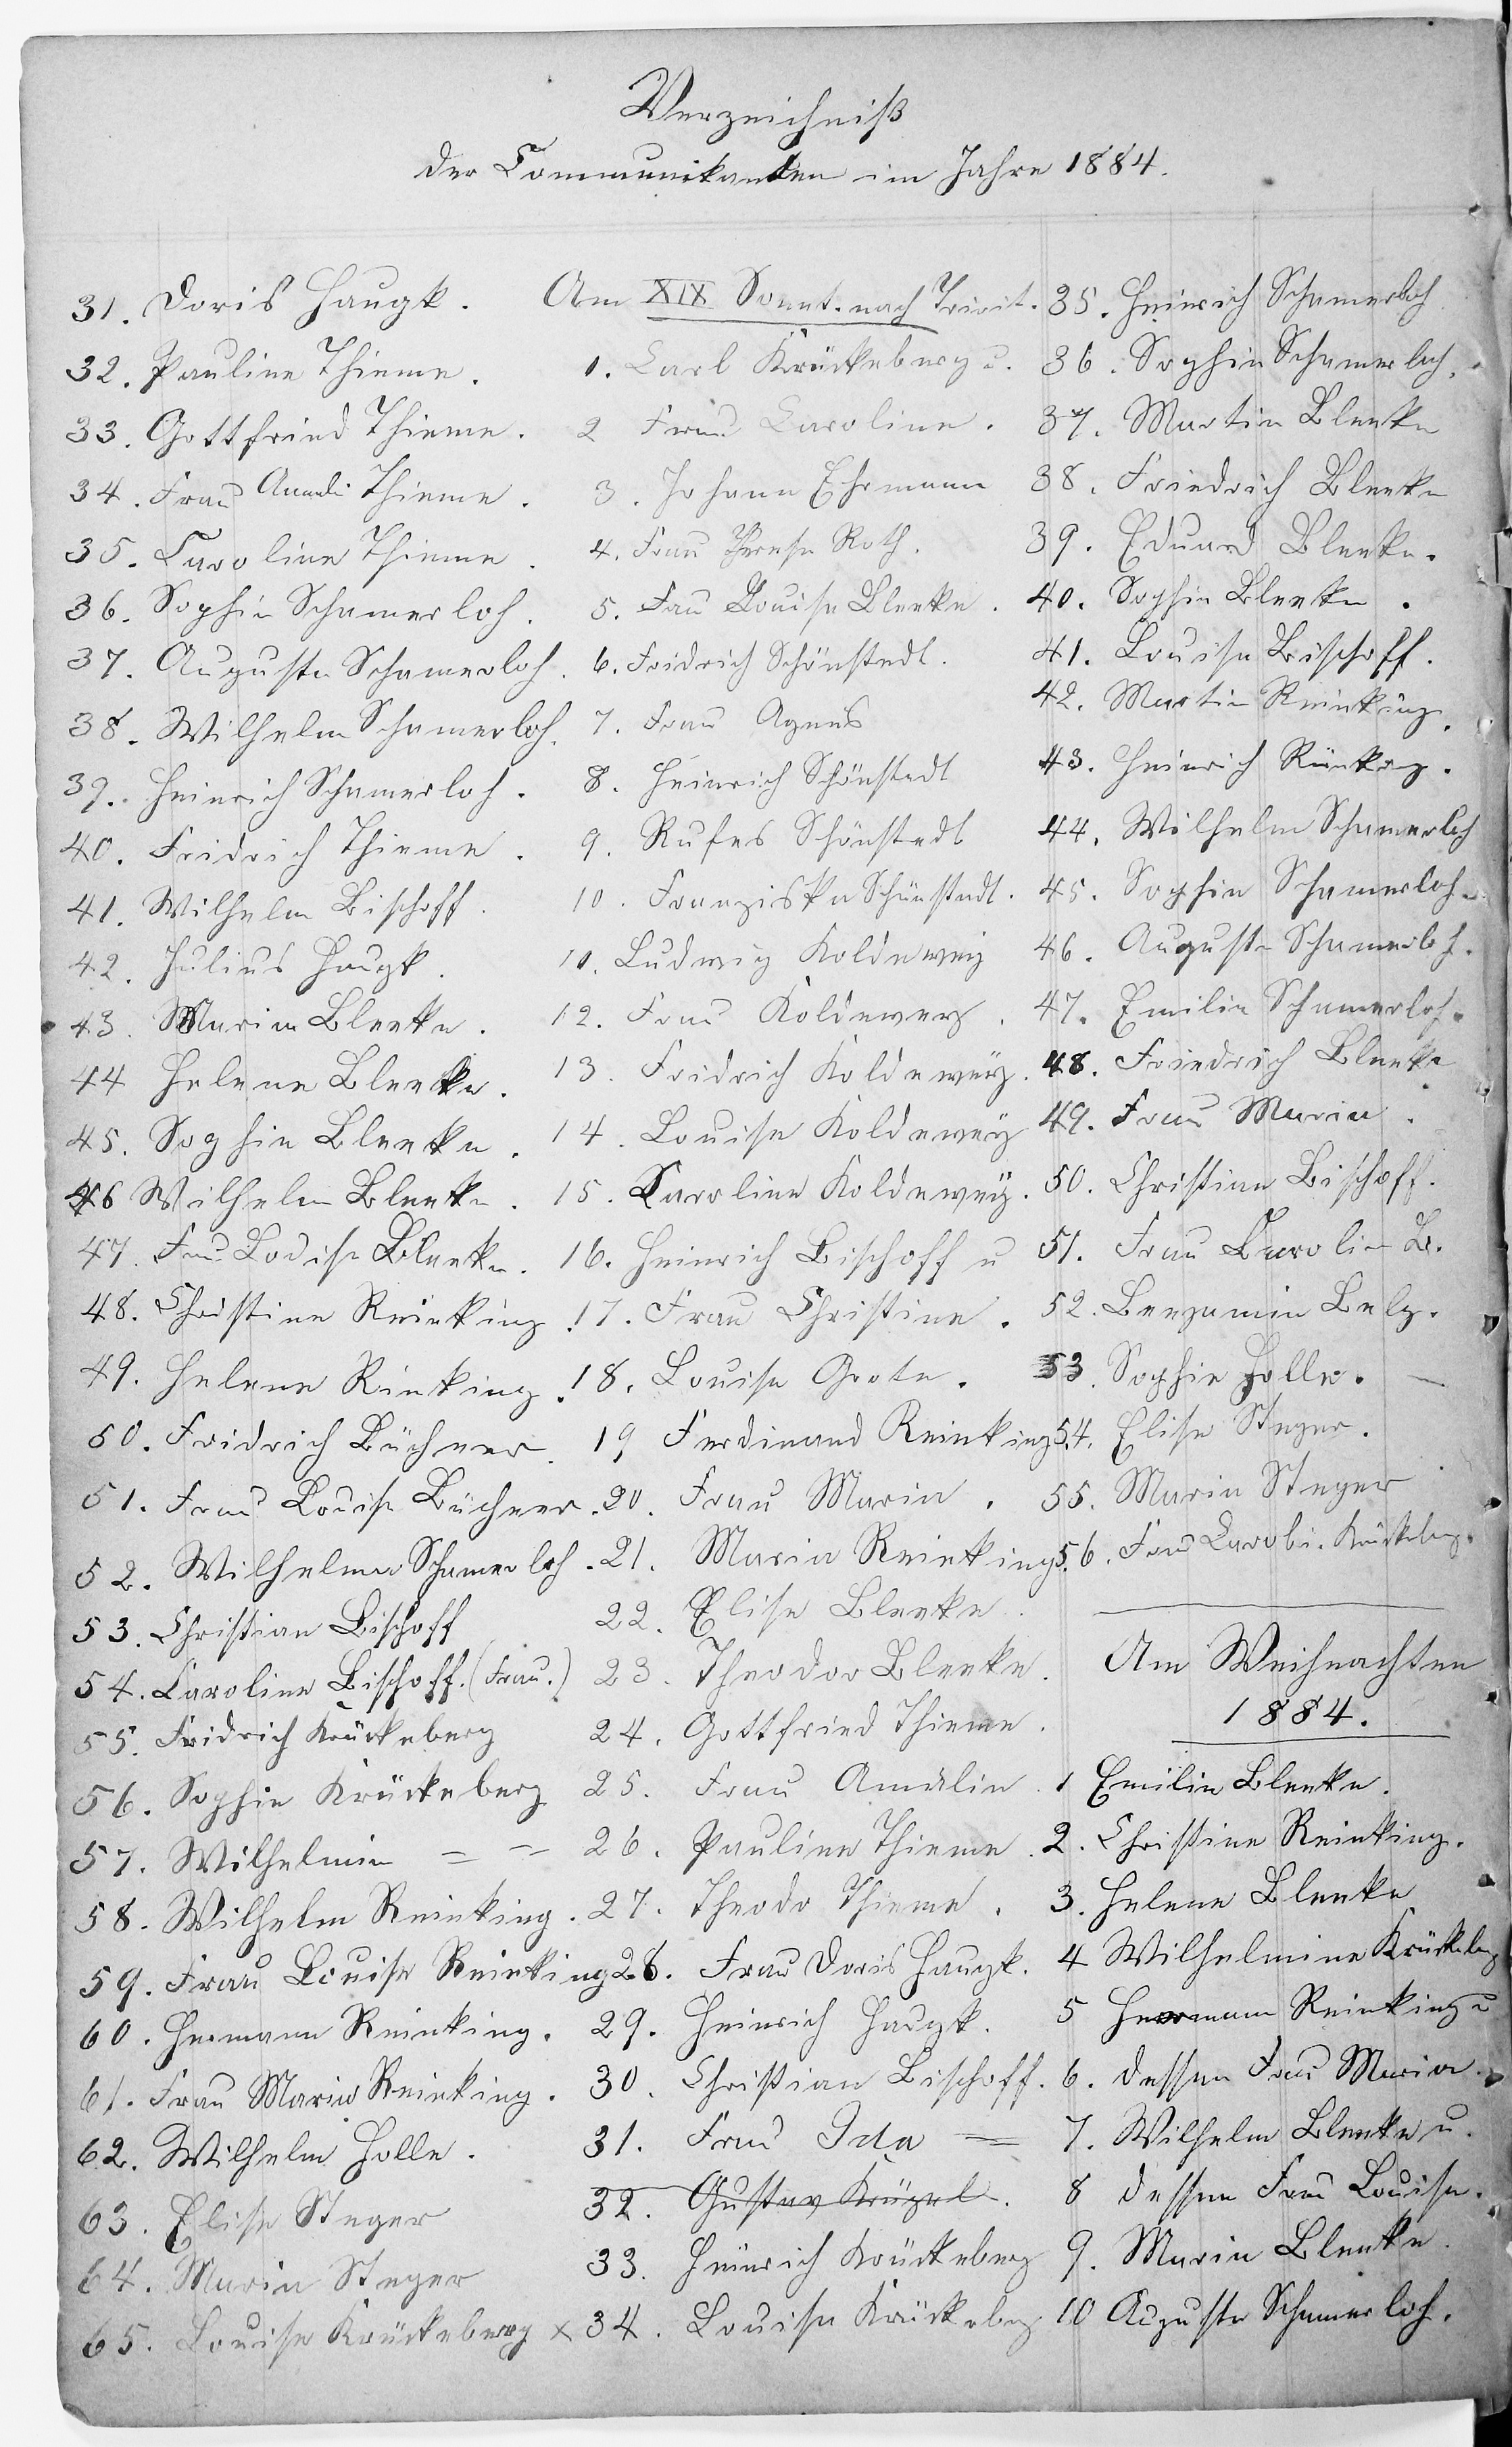 Verzeichniß
der Communikanten im Jahre 1884.
31. Doris Haugk.
32. Pauline Thieme.
33. Gottfried Thieme.
34. Frau Amali Thieme.
35. Caroline Thieme.
36. Sophie Schamerloh.
37. Auguste Schamerloh.
38. Wilhelm Schamerloh.
39. Heinrich Schamerloh.
40. Fridrich Thieme.
41. Wilhelm Bischoff.
42. Julius Haugk.
43. Maria Bleeke.
44 Helene Bleeke.
45. Sophie Bleeke.
46 Wilhelm Bleeke.
47. Frau Louise Bleeke.
48. Christine Reinking.
49. Helene Rinking.
50. Fridrich Büchner.
51. Frau Louise Büchner.
52. Wilhelmn Schamerloh.
53. Christian Bischoff
54. Caroline Bischoff. (Frau.)
55. Fridrich Krückeberg
56. Sophie Krückeberg
57. Wilhelmin = =
58. Wilhelm Reinking.
59. Frau Louise Reinking
60. Hermann Reinking.
61. Frau Maria Reinking.
62. Wilhelm Holle.
63. Elise Steger
64. Maria Steger
65. Louise Krückeberg x
Am XIX Sonnt. nach Trinit.
1. Carl Krückeberg u.
2 Frau Caroline.
3. Johann Ehrmann
4. Frau Therese Roth.
5. Fau Louise Bleeke.
6. Fridrich Schönstedt.
7. Frau Agnes
8. Heinrich Schönstedt
9. Rufes Schönstedt
10. Franziska Schönstedt.
11. Ludwig Koldewey
12. Frau Koldewey.
13. Fridrich Koldewey.
14. Louise Koldewey
15. Caroline Koldewey.
16. Heinrich Bischoff u
17. Frau Christine.
18. Louise Grote.
19 Ferdinand Reinking
20. Frau Maria.
21. Maria Reinking
22. Elise Bleeke.
23. Theodor Bleeke.
24. Gottfried Thieme.
25. Frau Amalie.
26. Pauline Thieme.
27. Theodo Thieme.
28. Frau Doris Haugk.
29. Heinrich Haugk.
30. Christian Bischoff.
31. Frau Ida =
32. Gustav Krügel.
33. Heinrich Krückeberg
34. Louise Krückebeg
35. Heinrich Schamerloh
36. Sophie Schamerloh.
37. Martin Bleeke
38. Friedrich Bleeke
39. Eduard Bleeke.
40. Sophie Bleeke.
41. Louise Bischoff.
42. Martin Reinking.
43. Heinrich Rinkeg.
44. Wilhelm Schamerloh
45. Sophie Schamerloh.
46. Auguste Schamerloh.
47. Emilie Schamerloh.
48. Friedrich Bleeke
49. Frau Maria.
50. Christian Bischoff.
51. Frau Carolin B.
52. Benjamin Belg.
53. Sophie Holle. —
54. Elise Steger.
55. Maria Steger
56. Frau Caroli. Krückebeg.
Am Weihnachten
1884.
1 Emilie Bleeke.
2. Christine Reinking.
3. Helene Bleeke
4 Wilhelmine Krückebeg
5 Hermann Reinking u
6. dessen Frau Maria.
7. Wilhelm Bleeke u.
8 dessen Frau Louise.
9. Maria Bleeke.
10 Auguste Schamerloh.